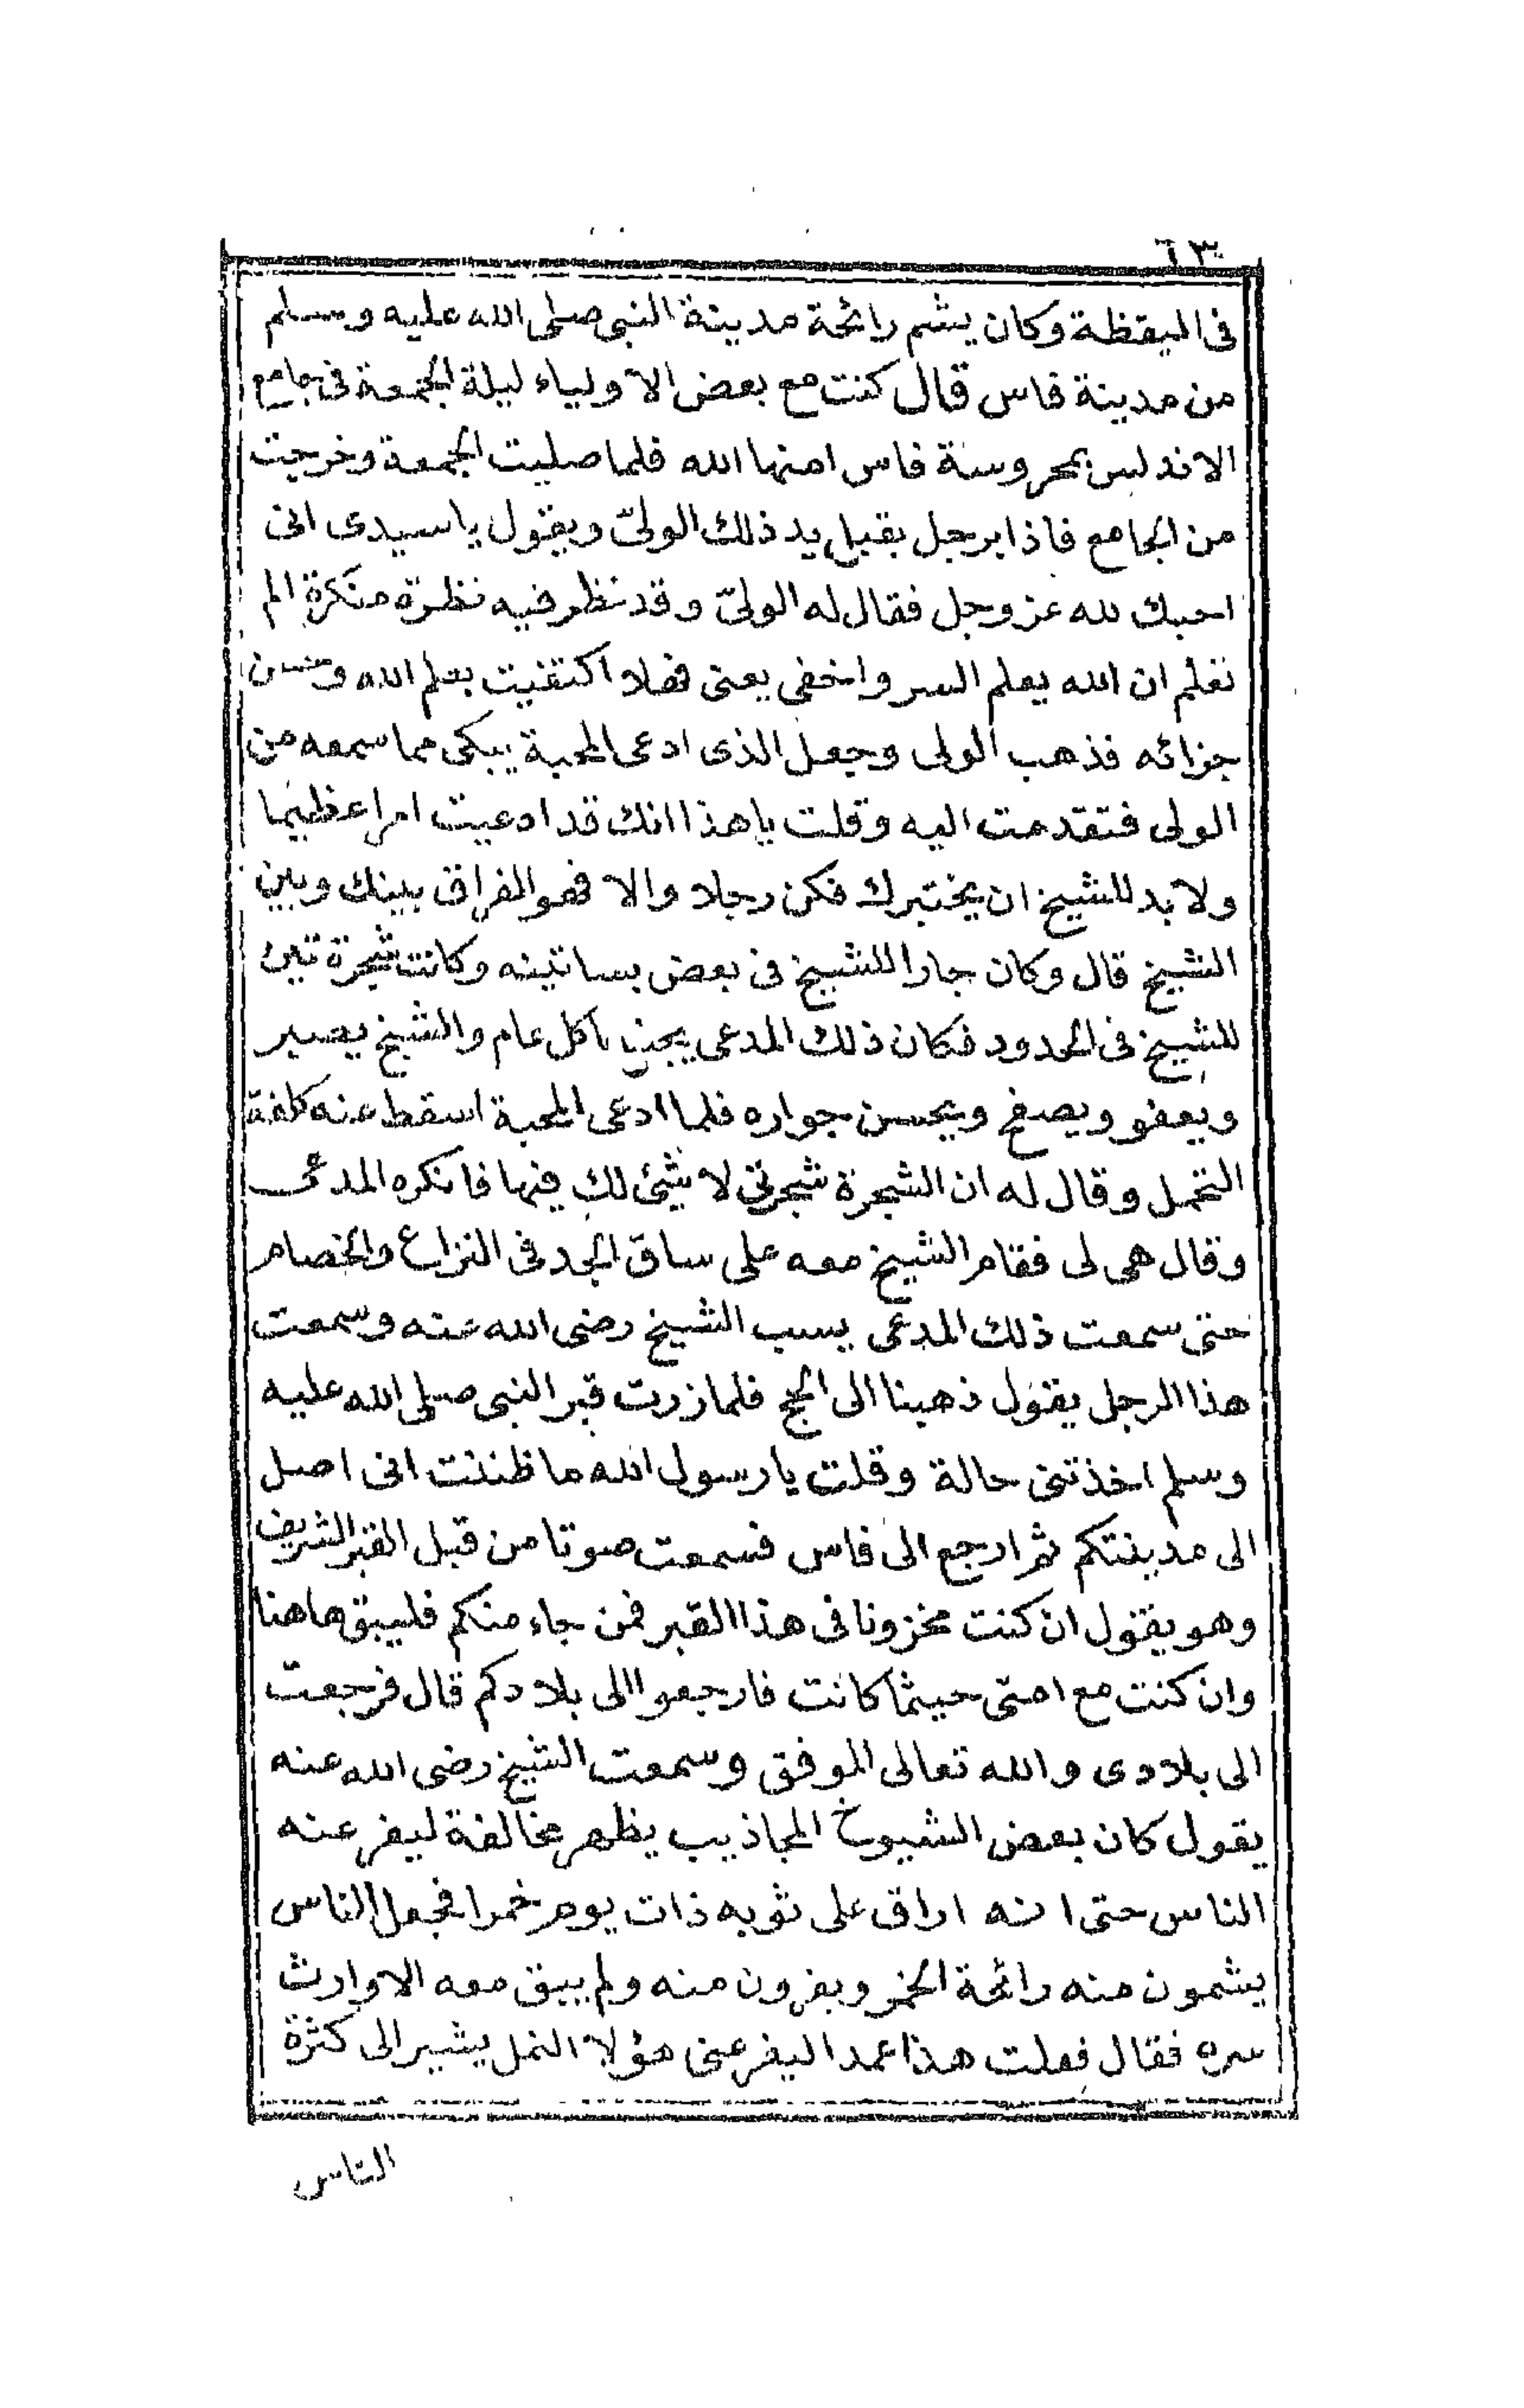 ٦٣
فى اليقظة وكان يشم رائحة مدينة النبى صلى الله عليه وسلم
من مدينة فاس قال كنت مع بعض الاولياء ليلة الجمعة فى جامع
الاندلس بمحروسة فاس امنها الله فلما صليت الجمعة وخرجت
من الجامع فاذا برجل يقبل يد ذلك الولىّ ويقول يا سيدى انى
احبك لله عز وجل فقال له الولىّ وقد نظر فيه نظرة منكرة الم
تعلم ان الله يعلم السر واخفى يعنى فهلا اكتفيت بعلم الله وحسن
جزائه فذهب الولى وجعل الذى ادعى المحبة يبكى مما سمعه من
الولى فتقدمت اليه وقلت يا هذا انك قد ادعيت امرا عظيما
ولا بد للشيخ ان يختبرك فكن رجلا والا فهو الفراق بينك وبين
الشيخ قال وكان جارا للشيخ فى بعض بساتينه وكانت شجرة تين
للشيخ فى الحدود فكان ذلك المدعى يجنيها كل عام والشيخ يصبر
ويعفو ويصفح ويحسن جواره فلما ادعى المحبة اسقط عنه كلفة
التحمل وقال له ان الشجرة شجرتى لا شئ لك فيها فانكره المدعى
وقال هى لى فقام الشيخ معه على ساق الجد فى النزاع والخصام
حتى سمعت ذلك المدعى يسب الشيخ رضى الله عنه وسمعت
هذا الرجل يقول ذهبنا الى الحج فلما زرت قبر النبى صلى الله عليه
وسلم اخذتنى حالة وقلت يا رسول الله ما ظننت انى اصل
الى مدينتكم ثم ارجع الى فاس فسمعت صوتا من قبل القبر الشريف
وهو يقول ان كنت مخزونا فى هذا القبر فمن جاء منكم فليبق هاهنا
وان كنت مع امتى حيثما كانت فارجعوا الى بلادكم قال فرجعت
الى بلادى والله تعالى الموفق وسمعت الشيخ رضى الله عنه
يقول كان بعض الشيوخ المجاذيب يظهر مخالفة ليفر عنه
الناس حتى انه اراق على ثوبه ذات يوم خمرا فجعل الناس
يشمون منه رائحة الخمر ويفرون منه ولم يبق معه الا وارث
سره فقال فعلت هذا عمدا ليفر عنى هؤلا النمل يشير الى كثرة
الناس